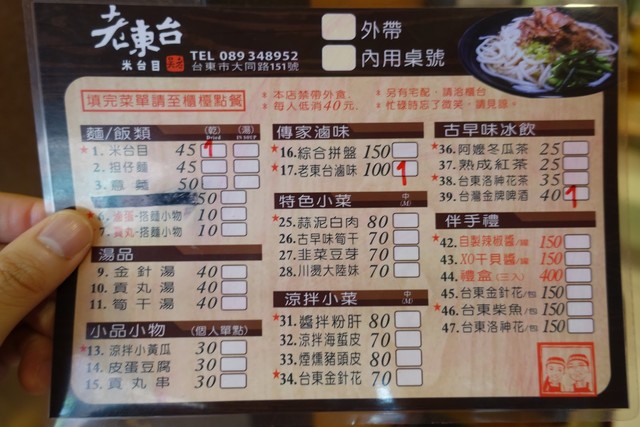 老東台
米台目
TEL 089 348952
台東市大同路151號
外帶
內用桌號
填完菜單請至櫃檯點餐
* 本店禁帶外食.
* 每人低消40元.
* 另有宅配,請洽櫃台
* 忙碌時忘了微笑,請見諒.
麵/飯類 (乾) Dried (湯) IN SOUP
*1. 米台目 45 1
2. 担仔麵 45
3. 意麵 50
50
*6. 滷蛋-搭麵小物 10
*7. 貢丸-搭麵小物 10
湯品
9. 金針湯 40
10. 貢丸湯 40
11. 筍干湯 40
小品小物 (個人單點)
*13. 涼拌小黃瓜 30
14. 皮蛋豆腐 30
15. 貢丸串 30
傳家滷味
*16. 綜合拼盤 150
*17. 老東台滷味 100 1
特色小菜 中(M)
*25. 蒜泥白肉 80
26. 古早味筍干 70
27. 韭菜豆芽 70
28. 川燙大陸妹 70
涼拌小菜 中(M)
*31. 醬拌粉肝 80
32. 涼拌海蜇皮 70
33. 煙燻豬頭皮 80
*34. 台東金針花 70
古早味冰飲
*36. 阿嬤冬瓜茶 25
37. 熟成紅茶 25
*38. 台東洛神花茶 35
39. 台灣金牌啤酒 40 1
伴手禮
*42. 自製辣椒醬/罐 150
43. XO干貝醬/罐 150
44. 禮盒(三入) 400
45. 台東金針花/包 150
*46. 台東柴魚/包 150
47. 台東洛神花/包 150